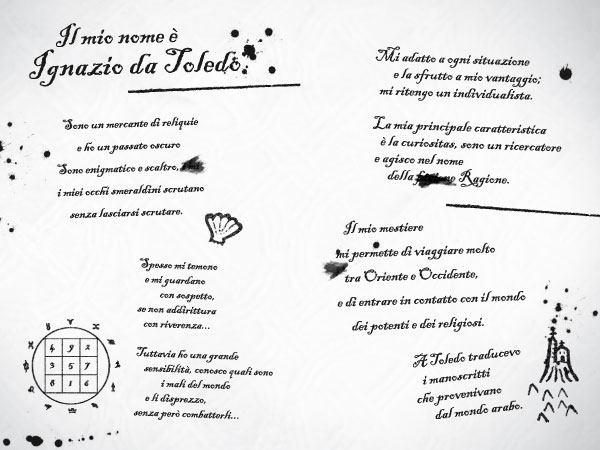 Il mio nome è
Ignazio da Toledo.
Sono un mercante di reliquie
e ho un passato oscuro
Sono enigmatico e scaltro,
i miei occhi smeraldini scrutano
senza lasciarsi scrutare.
Spesso mi temono
e mi guardano
con sospetto,
se non addirittura
con riverenza...
Tuttavia ho una grande
sensibilità, conosco quali sono
i mali del mondo
e li disprezzo,
senza però combatterli...
4 9 2
3 5 7
8 1 6
Mi adatto a ogni situazione
e la sfrutto a mio vantaggio;
mi ritengo un individualista.
La mia principale caratteristica
è la curiositas, sono un ricercatore
e agisco nel nome
della Ragione.
Il mio mestiere
mi permette di viaggiare molto
tra Oriente e Occidente,
e di entrare in contatto con il mondo
dei potenti e dei religiosi.
A Toledo traducevo
i manoscritti
che provenivano
dal mondo arabo.